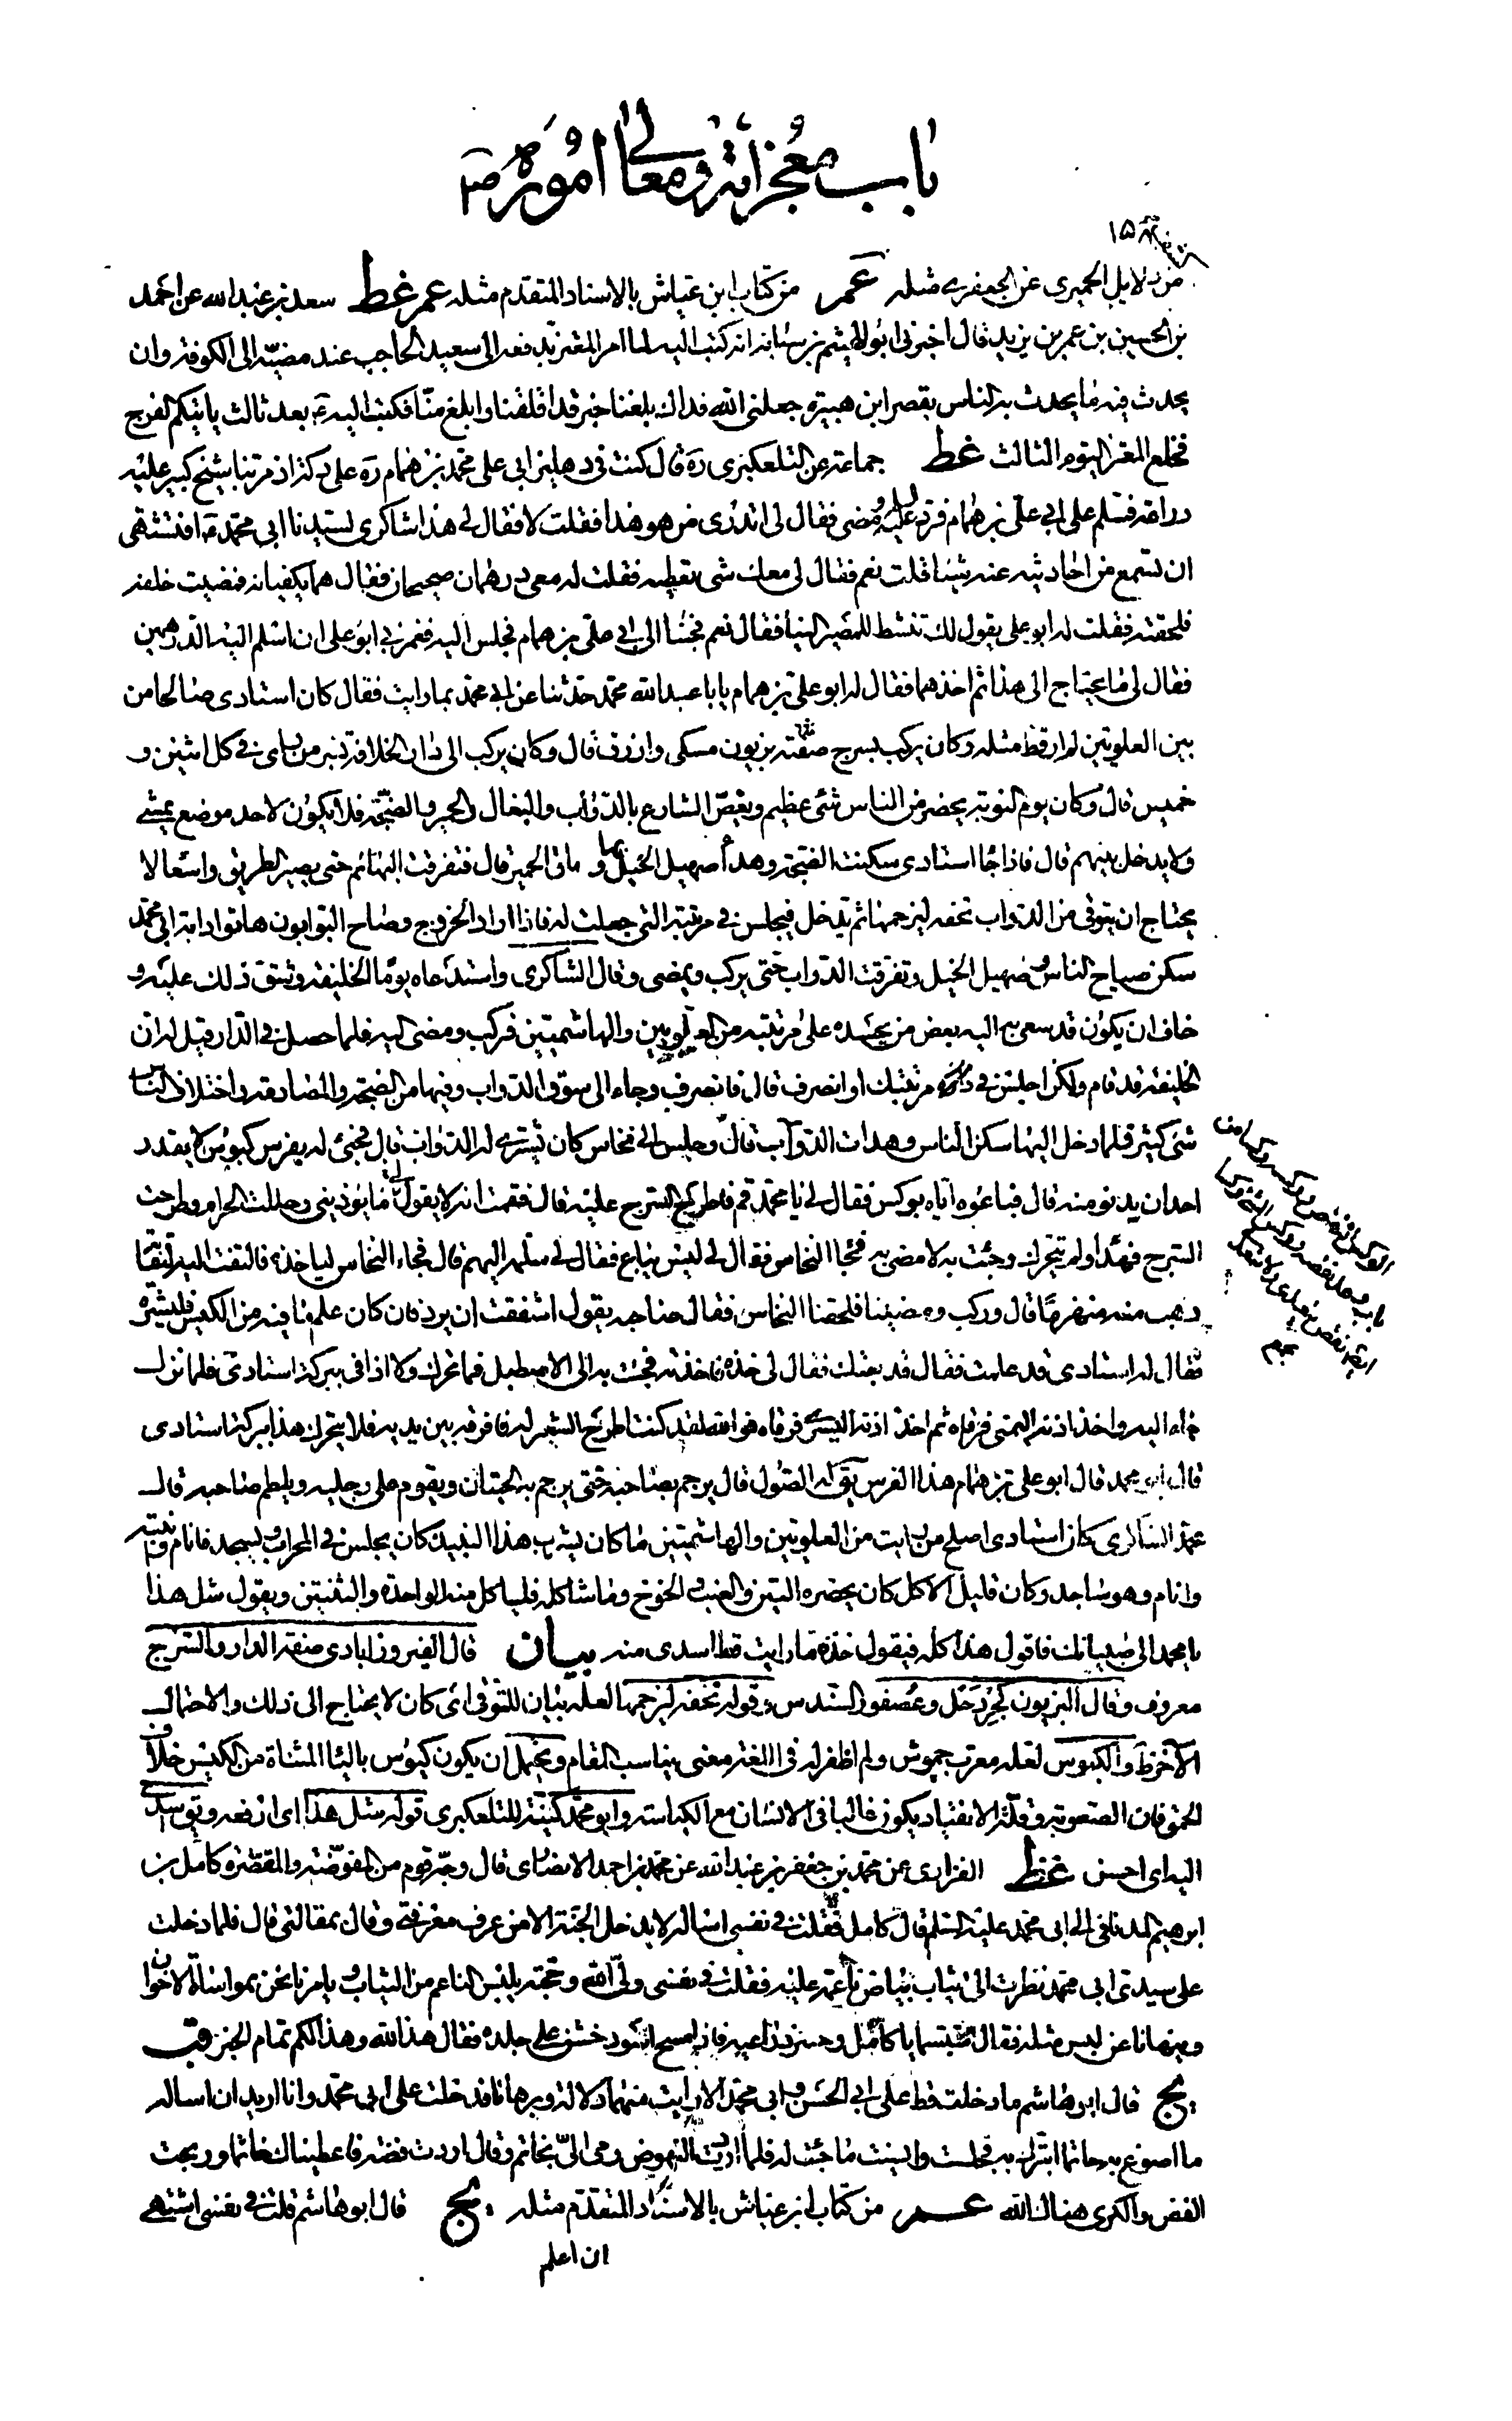 باب معجزاته ومعالي اموره ص
١٥
من دلايل الحميرى عن الجعفرى مثله عمر من كتاب ابن عياش بالاسناد المتقدم مثله عمر غط سعد بن عبد الله عن احمد
بن الحسين بن عمر بن يزيد قال اخبرنى ابو الهيثم بن سيابه انه كتب اليه لما امر المعتز بدفعه الى سعيد الحاجب عند مضيه الى الكوفة وان
يحدث فيه ما يحدث به الناس بقصر ابن هبيرة جعلنى الله فداك بلغنا خبر قد اقلقنا وابلغ منا فكتب اليه ع بعد ثالث ياتيكم الفرج
فخلع المعتز اليوم الثالث غط جماعة عن التلعكبرى ره قال كنت فى دهليز ابى على محمد بن همام ره على دكة اذ مر بنا شيخ كبير عليه
دراعة فسلم على ابى على بن همام فرد عليه السلم ومضى فقال لى اتدرى من هو هذا فقلت لا فقال لى هذا شاكرى لسيدنا ابى محمد ع افتشتهى
ان تسمع من احاديثه عنه شيئا قلت نعم فقال لى معك شى تعطيه فقلت له معى درهمان صحيحان فقال هما يكفيانه فمضيت خلفه
فلحقته فقلت له ابو على يقول لك تنشط للمصير الينا فقال نعم فجئنا الى ابى على بن همام فجلس اليه فغمزنى ابو على ان اسلم اليه الدرهمين
فقال لى ما يحتاج الى هذا ثم اخذهما فقال له ابو على بن همام يا با عبد الله محمد حدثنا عن ابى محمد بما رايت فقال كان استادى صالحا من
بين العلويين لم ار قط مثله وكان يركب بسرج صفته بزيون مسكى وازرق قال وكان يركب الى دار الخلافة بسر من راى فى كل اثنين و
خميس قال وكان يوم النوبة يحضر من الناس شئ عظيم ويغص الشارع بالدواب والبغال والحمير والضجة فلا يكون لاحد موضع يمشى
ولا يدخل بينهم قال فاذا جا استادى سكنت الضجة وهدأ صهيل الخيل ونهاق الحمير قال فتفرقت البهائم حتى يصير الطريق واسعا لا
يحتاج ان يتوقى من الدواب تحفه ليزحمها ثم يدخل فيجلس فى مرتبته التى جعلت له فاذا اراد الخروج وصاح البوابون هاتوا دابة ابى محمد
سكن صياح الناس وصهيل الخيل وتفرقت الدواب حتى يركب ويمضى وقال الشاكرى واستدعاه يوما الخليفة وشق ذلك عليه و
خاف ان يكون قد سعى به اليه بعض من يحسده على مرتبته من العلويين والهاشميين فركب ومضى اليه فلما حصل فى الدار قيل له ان
الخليفة قد قام ولكن اجلس فى مرتبتك او انصرف قال فانصرف وجاء الى سوق الدواب وفيها من الضجة والمصادمة واختلاف الناس
شئ كثير فلما دخل اليها سكن الناس وهدات الدواب قال وجلس الى نخاس كان يشترى له الدواب قال فجئ له بفرس كبوس لا يقدر
احد ان يدنو منه قال فباعوه اياه بوكس فقال لى يا محمد قم فاطرح السرج عليه قال فقمت انه لا يقول لى ما يؤذينى وحللت الحزام وطرحت
السرج فهدأ ولم يتحرك وجئت به لامضى به فجا النخاس فقال لى ليس يباع فقال لى سلمه اليهم قال فجاء النخاس لياخذه فالتفت اليه التفاتا
ذهب منه منهزما قال وركب ومضينا فلحقنا النخاس فقال صاحبه يقول اشفقت ان يرد فان كان علم ما فيه من الكبس فليشتره
فقال له استادى قد علمت فقال قد بعتك فقال لى خذه فاخذته فجئت به الى الاصطبل فما تحرك ولا اذانى ببركة استادى فلما نزل
جاء اليه واخذ اذنه اليمنى فرقاه ثم اخذ اذنه اليسرى فرقاه فوالله لقد كنت اطرح الشعير له فافرقه بين يديه فلا يتحرك هذا ببركة استادى
قال ابو محمد قال ابو على بن همام هذا الفرس يقال له الصئول قال يرجم بصاحبه حتى يرجم به الحيطان ويقوم على رجليه ويلطم صاحبه قال
محمد الشاكرى كان استادى اصلح من رايت من العلويين والهاشميين ما كان يشرب هذا النبيذ كان يجلس فى المحراب ويسجد فانام وانتبه
وانام وهو ساجد وكان قليل الاكل كان يحضره التين والعنب والخوخ وما شاكله فياكل منه الواحدة والثنتين ويقول شل هذا
يا محمد الى صبيانك فاقول هذا كله فيقول خذه ما رايت قط اسدى منه بيان قال الفيروزابادى صفة الدار والسرج
معروف وقال البزيون كجردحل وعصفور السندس وقوله تحفه ليزحمها لعله بيان للتوقى اى كان لا يحتاج الى ذلك والاحتمال
الآخر والكبوس لعله معرب چموش ولم اظفر له فى اللغة معنى يناسب المقام ويحتمل ان يكون كيوس باليا المثناة من الكيس خلاف
الحمق فان الصعوبة وقلة الانقياد يكون غالبا فى الانسان مع الكياسة وابو محمد كنية للتلعكبرى قوله شل هذا اى ارفعه
اليه اى احسن غط الفزارى عن محمد بن جعفر بن عبد الله عن محمد بن احمد الانصارى قال وجه قوم من المفوضة والمقصرة كامل بن
ابرهيم المدنى الى ابى محمد عليه السلم قال كامل فقلت فى نفسى اساله لا يدخل الجنة الا من عرف معرفتى وقال بمقالتى قال فلما دخلت
على سيدى ابى محمد نظرت الى ثياب بياض ناعمة عليه فقلت فى نفسى ولى الله وحجته يلبس الناعم من الثياب ويامرنا نحن بمواساة الاخوان
وينهانا عن لبس مثله فقال متبسما يا كامل وحسر ذراعيه فاذا مسح اسود خشن على جلده فقال هذا لله وهذا لكم تمام الخبر
يج قال ابو هاشم ما دخلت قط على ابى الحسن وابى محمد الا رايت منهما دلالة وبرهانا فدخلت على ابى محمد وانا اريد ان اساله
ما اصوغ به خاتما اتبرك به فجلست وانسيت ما جئت له فلما اردت النهوض رمى الى بخاتم وقال اردت فضة فاعطيناك خاتما وربحت
الفص والكرى هناك الله عمر من كتاب ابن عياش بالاسناد المتقدم مثله يج قال ابو هاشم قلت فى نفسى اشتهى
ان اعلم